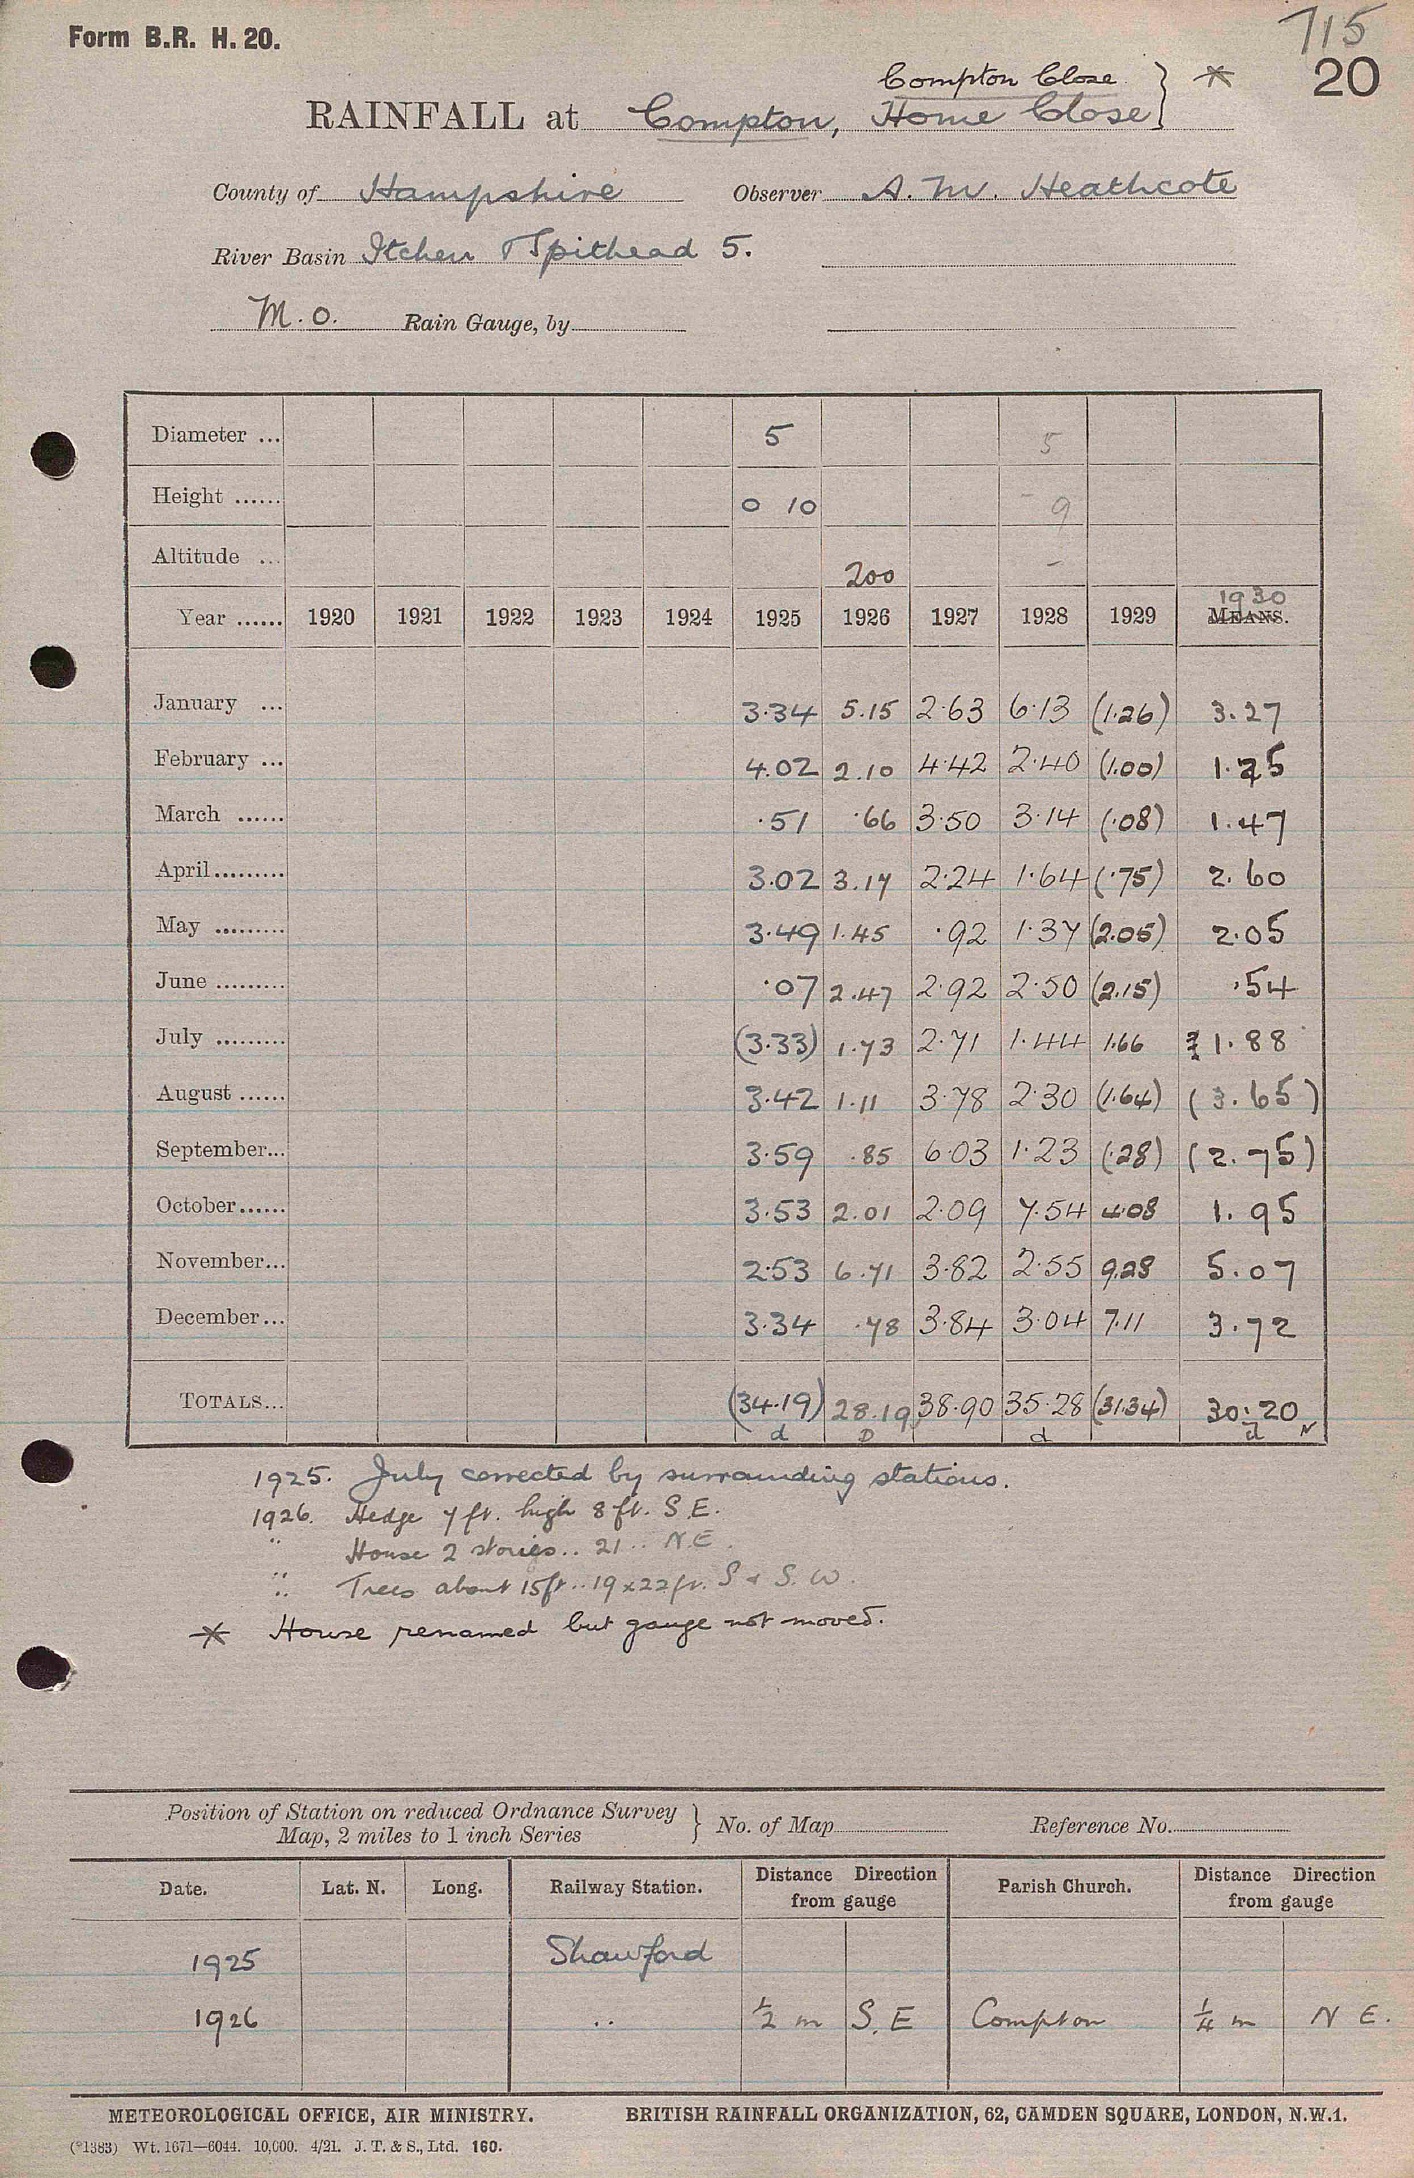 Form B.R. H. 20.
715
20
Compton Close } *
RAINFALL at Compton, Home Close
County of Hampshire Observer A. M. Heathcote
River Basin Itchen & Spithead 5.
M.O. Rain Gauge, by
Diameter ... 5 5
Height ...... 0 10 9
Altitude ... 200 -
1930
Year ...... 1920 1921 1922 1923 1924 1925 1926 1927 1928 1929 MEANS.
January ... 3.34 5.15 2.63 6.13 (1.26) 3.27
February ... 4.02 2.10 4.42 2.40 (1.00) 1.25
March ...... .51 .66 3.50 3.14 (.08) 1.47
April......... 3.02 3.17 2.24 1.64 (.75) 2.60
May ......... 3.49 1.45 .92 1.37 (2.05) 2.05
June ......... .07 2.47 2.92 2.50 (2.15) .54
July ......... (3.33) 1.73 2.71 1.44 1.66 1.88
August ...... 3.42 1.11 3.78 2.30 (1.64) (3.65)
September... 3.59 .85 6.03 1.23 (.28) (2.75)
October...... 3.53 2.01 2.09 7.54 4.08 1.95
November... 2.53 6.71 3.82 2.55 9.28 5.07
December... 3.34 .78 3.84 3.04 7.11 3.72
TOTALS... (34.19) 28.19 38.90 35.28 (31.34) 30.20
d D d d N
1925. July corrected by surrounding stations.
1926. Hedge 7 ft. high 8 ft. S.E.
" House 2 stories .. 21 .. N.E.
" Trees about 15ft .. 19 x 22 ft. S & S.W.
* House renamed but gauge not moved.
Position of Station on reduced Ordnance Survey
Map, 2 miles to 1 inch Series } No. of Map Reference No.
Date. Lat. N. Long. Railway Station. Distance Direction from gauge Parish Church. Distance Direction from gauge
1925 Shawford
1926 .. ½ m S.E Compton ¼ m N E.
METEOROLOGICAL OFFICE, AIR MINISTRY. BRITISH RAINFALL ORGANIZATION, 62, CAMDEN SQUARE, LONDON, N.W.1.
(*1383) Wt. 1671—6044. 10,000. 4/21. J. T. & S., Ltd. 160.